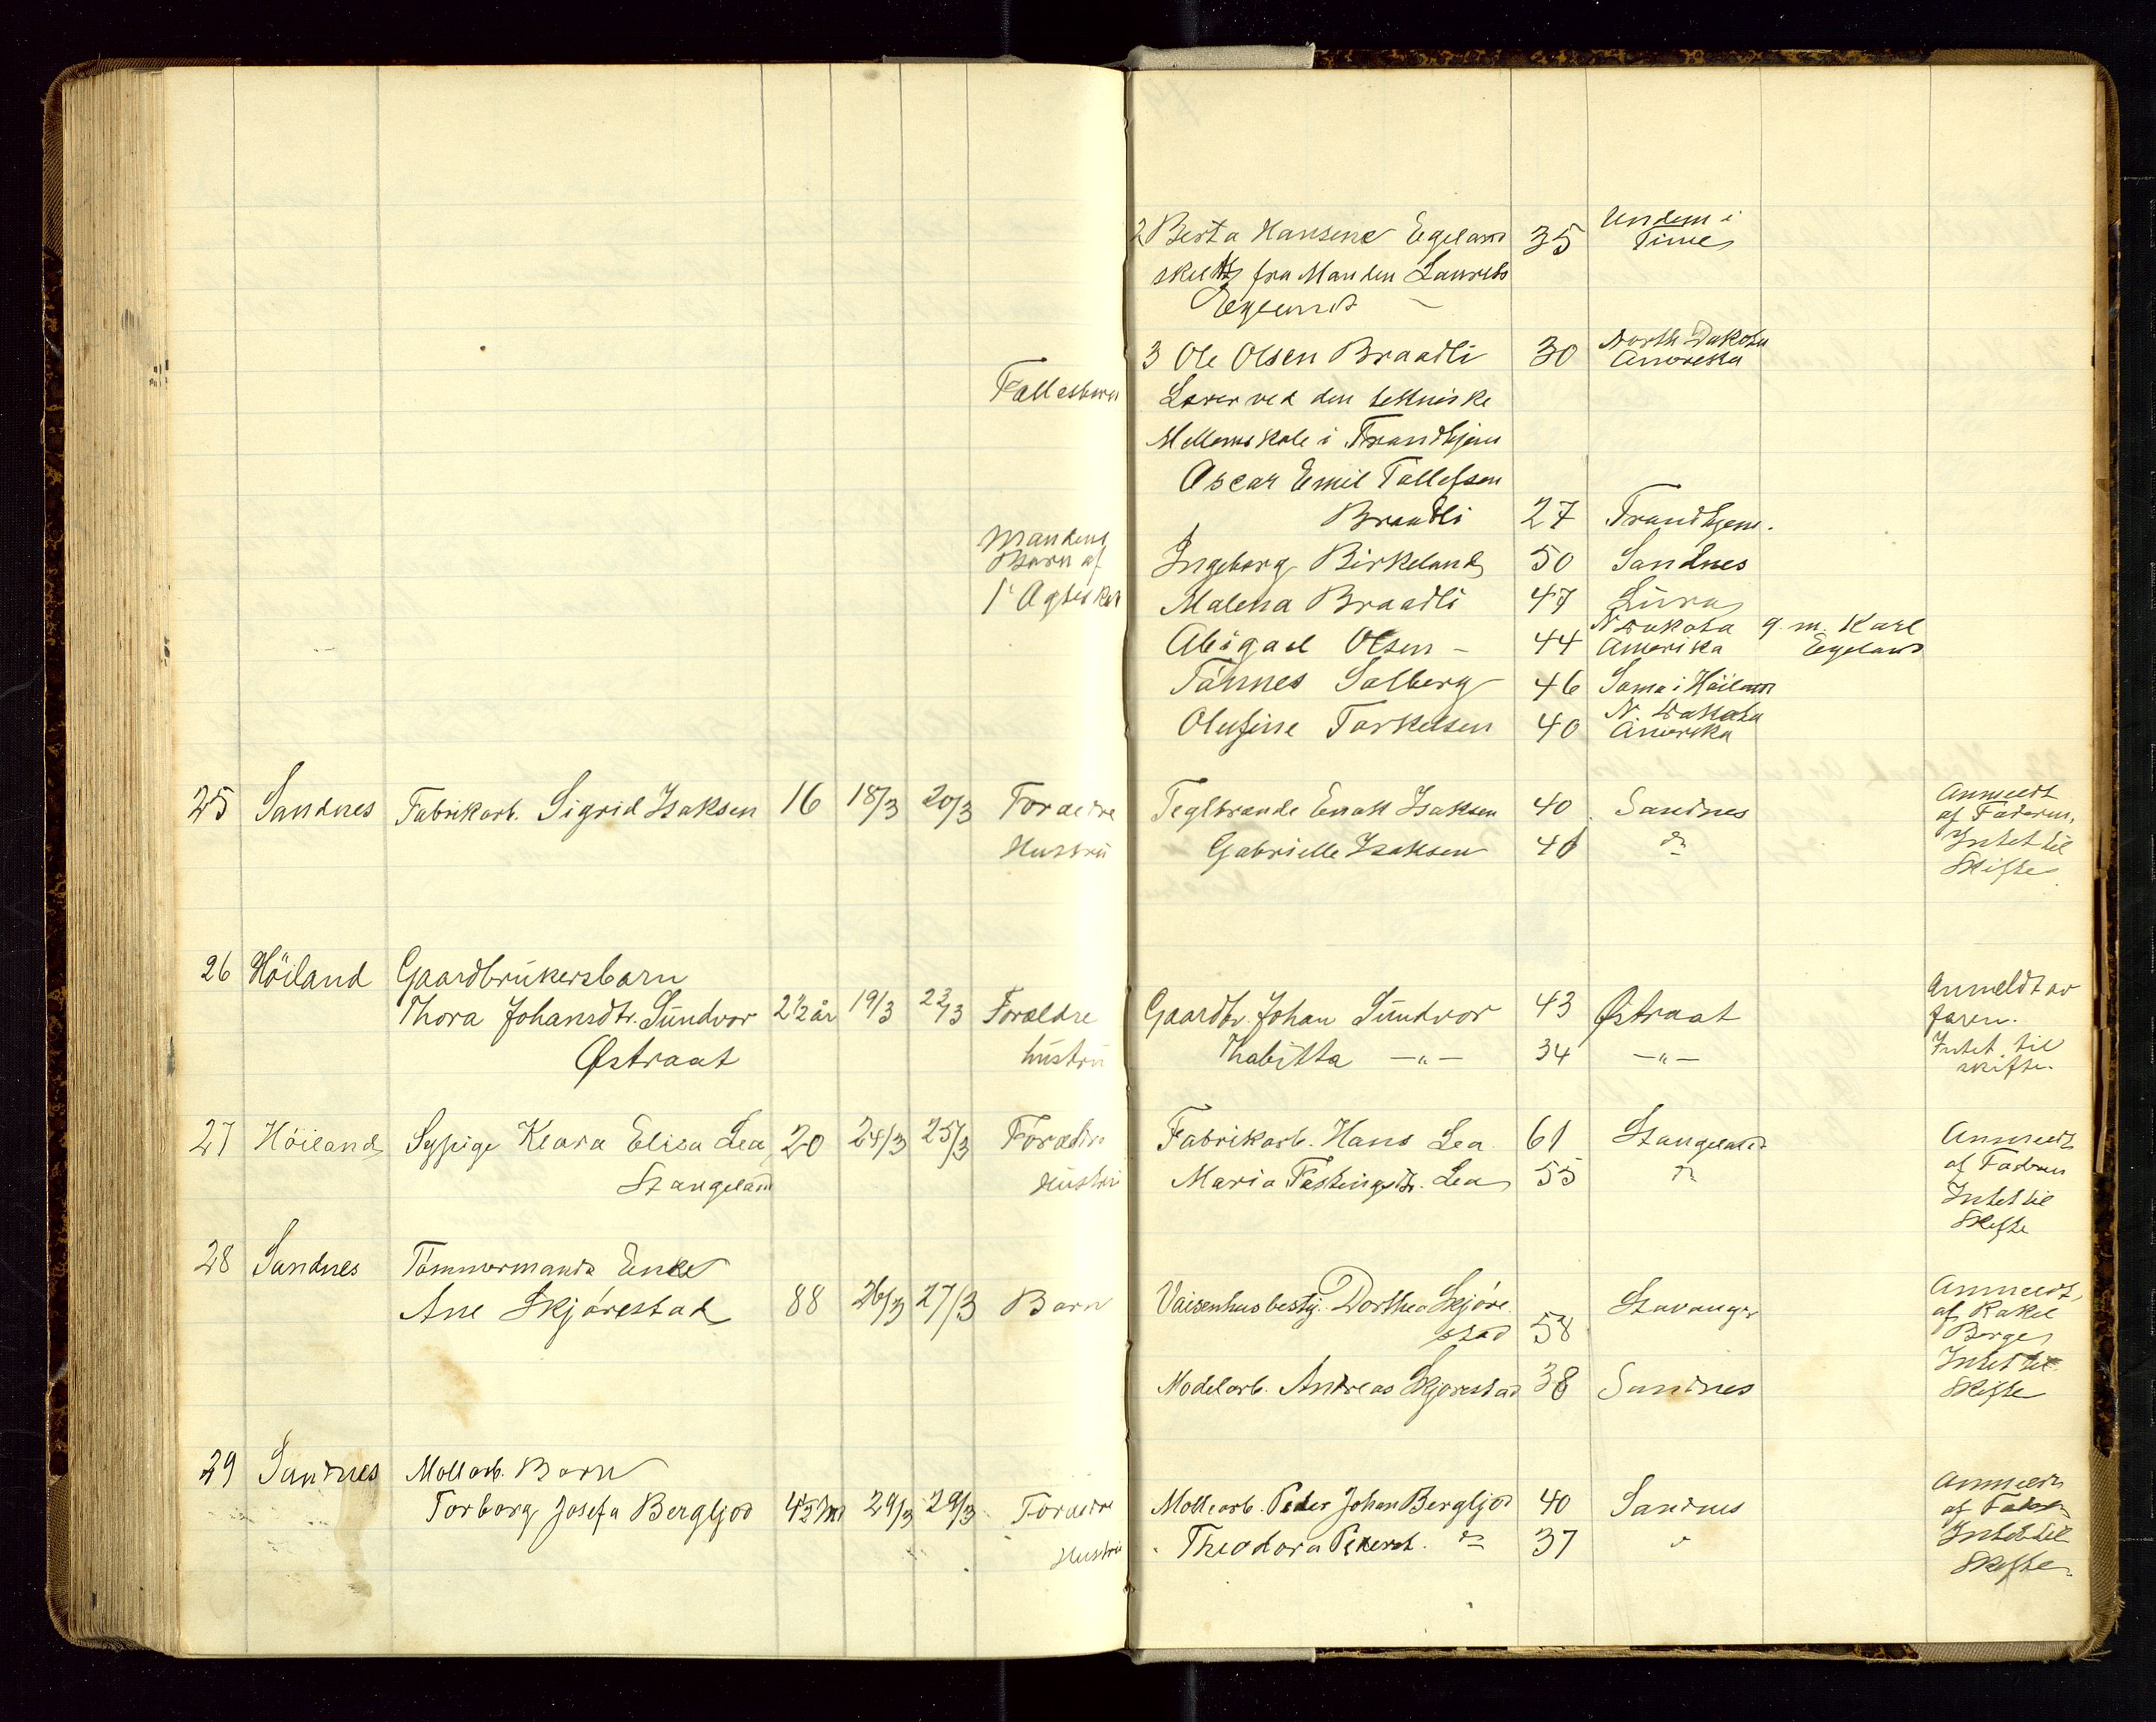 2 Berta Hansine Egeland 35 Undem i Time
skilt fra Manden Laurits
Egeland
3 Ole Olsen Braadli 30 North Dakota Amerika
Fællesbarn Lærer ved den tekniske
Mellemskole i Trondhjem
Oscar Emil Tollefsen
Braadli 27 Trondhjem.
Mandens Barn af 1' Ægteskab Ingeborg Birkeland 50 Sandnes
Malena Braadli 47 Lura
Abigael Olsen - 44 N Dakota Amerika g. m. Karl Egeland
Tönnes Solberg 46 Soma i Höiland
Olufine Torkelsen 40 N. Dakota Amerika
25 Sandnes Fabrikarb. Sigrid Isaksen 16 18/3 20/3 Forældre Teglbrænde Enok Isaksen 40 Sandnes Anmeldt
af Faderen,
Hustru Gabrielle Isaksen 41 do Intet til
Skifte
26 Höiland Gaardbrukersbarn
Thora Johansdtr. Sundvor 2 1/2 år 19/3 22/3 Forældre Gaardbr. Johan Sundvor 43 Østraat Anmeldt av
faren.
Østraat hustru Thabitta —"— 34 —"— Intet til
skifte.
27 Höiland Sypige Klara Elisa Lea 20 24/3 25/3 Forældre Fabrikarb. Hans Lea 61 Stangeland Anmeldt
af Faderen
Stangeland Hustru Maria Fastingsdtr. Lea 55 do Intet til
Skifte
28 Sandnes Tömmermands Enke
Ane Skjörestad 88 26/3 27/3 Barn Vaisenhusbesty. Dorthea Skjöre-
stad 58 Stavanger Anmeldt
af Rakel
Berge
Modelarb. Andreas Skjörestad 38 Sandnes Intet til
Skifte
29 Sandnes Möllarb. Barn
Torborg Josefa Bergljod 4 1/2 M 29/3 29/3 Forældre Möllearb. Peder Johan Bergljod 40 Sandnes Anmeldt
af Faderen
Hustru Theodora Pedersd. do 37 Intet til
Skifte.